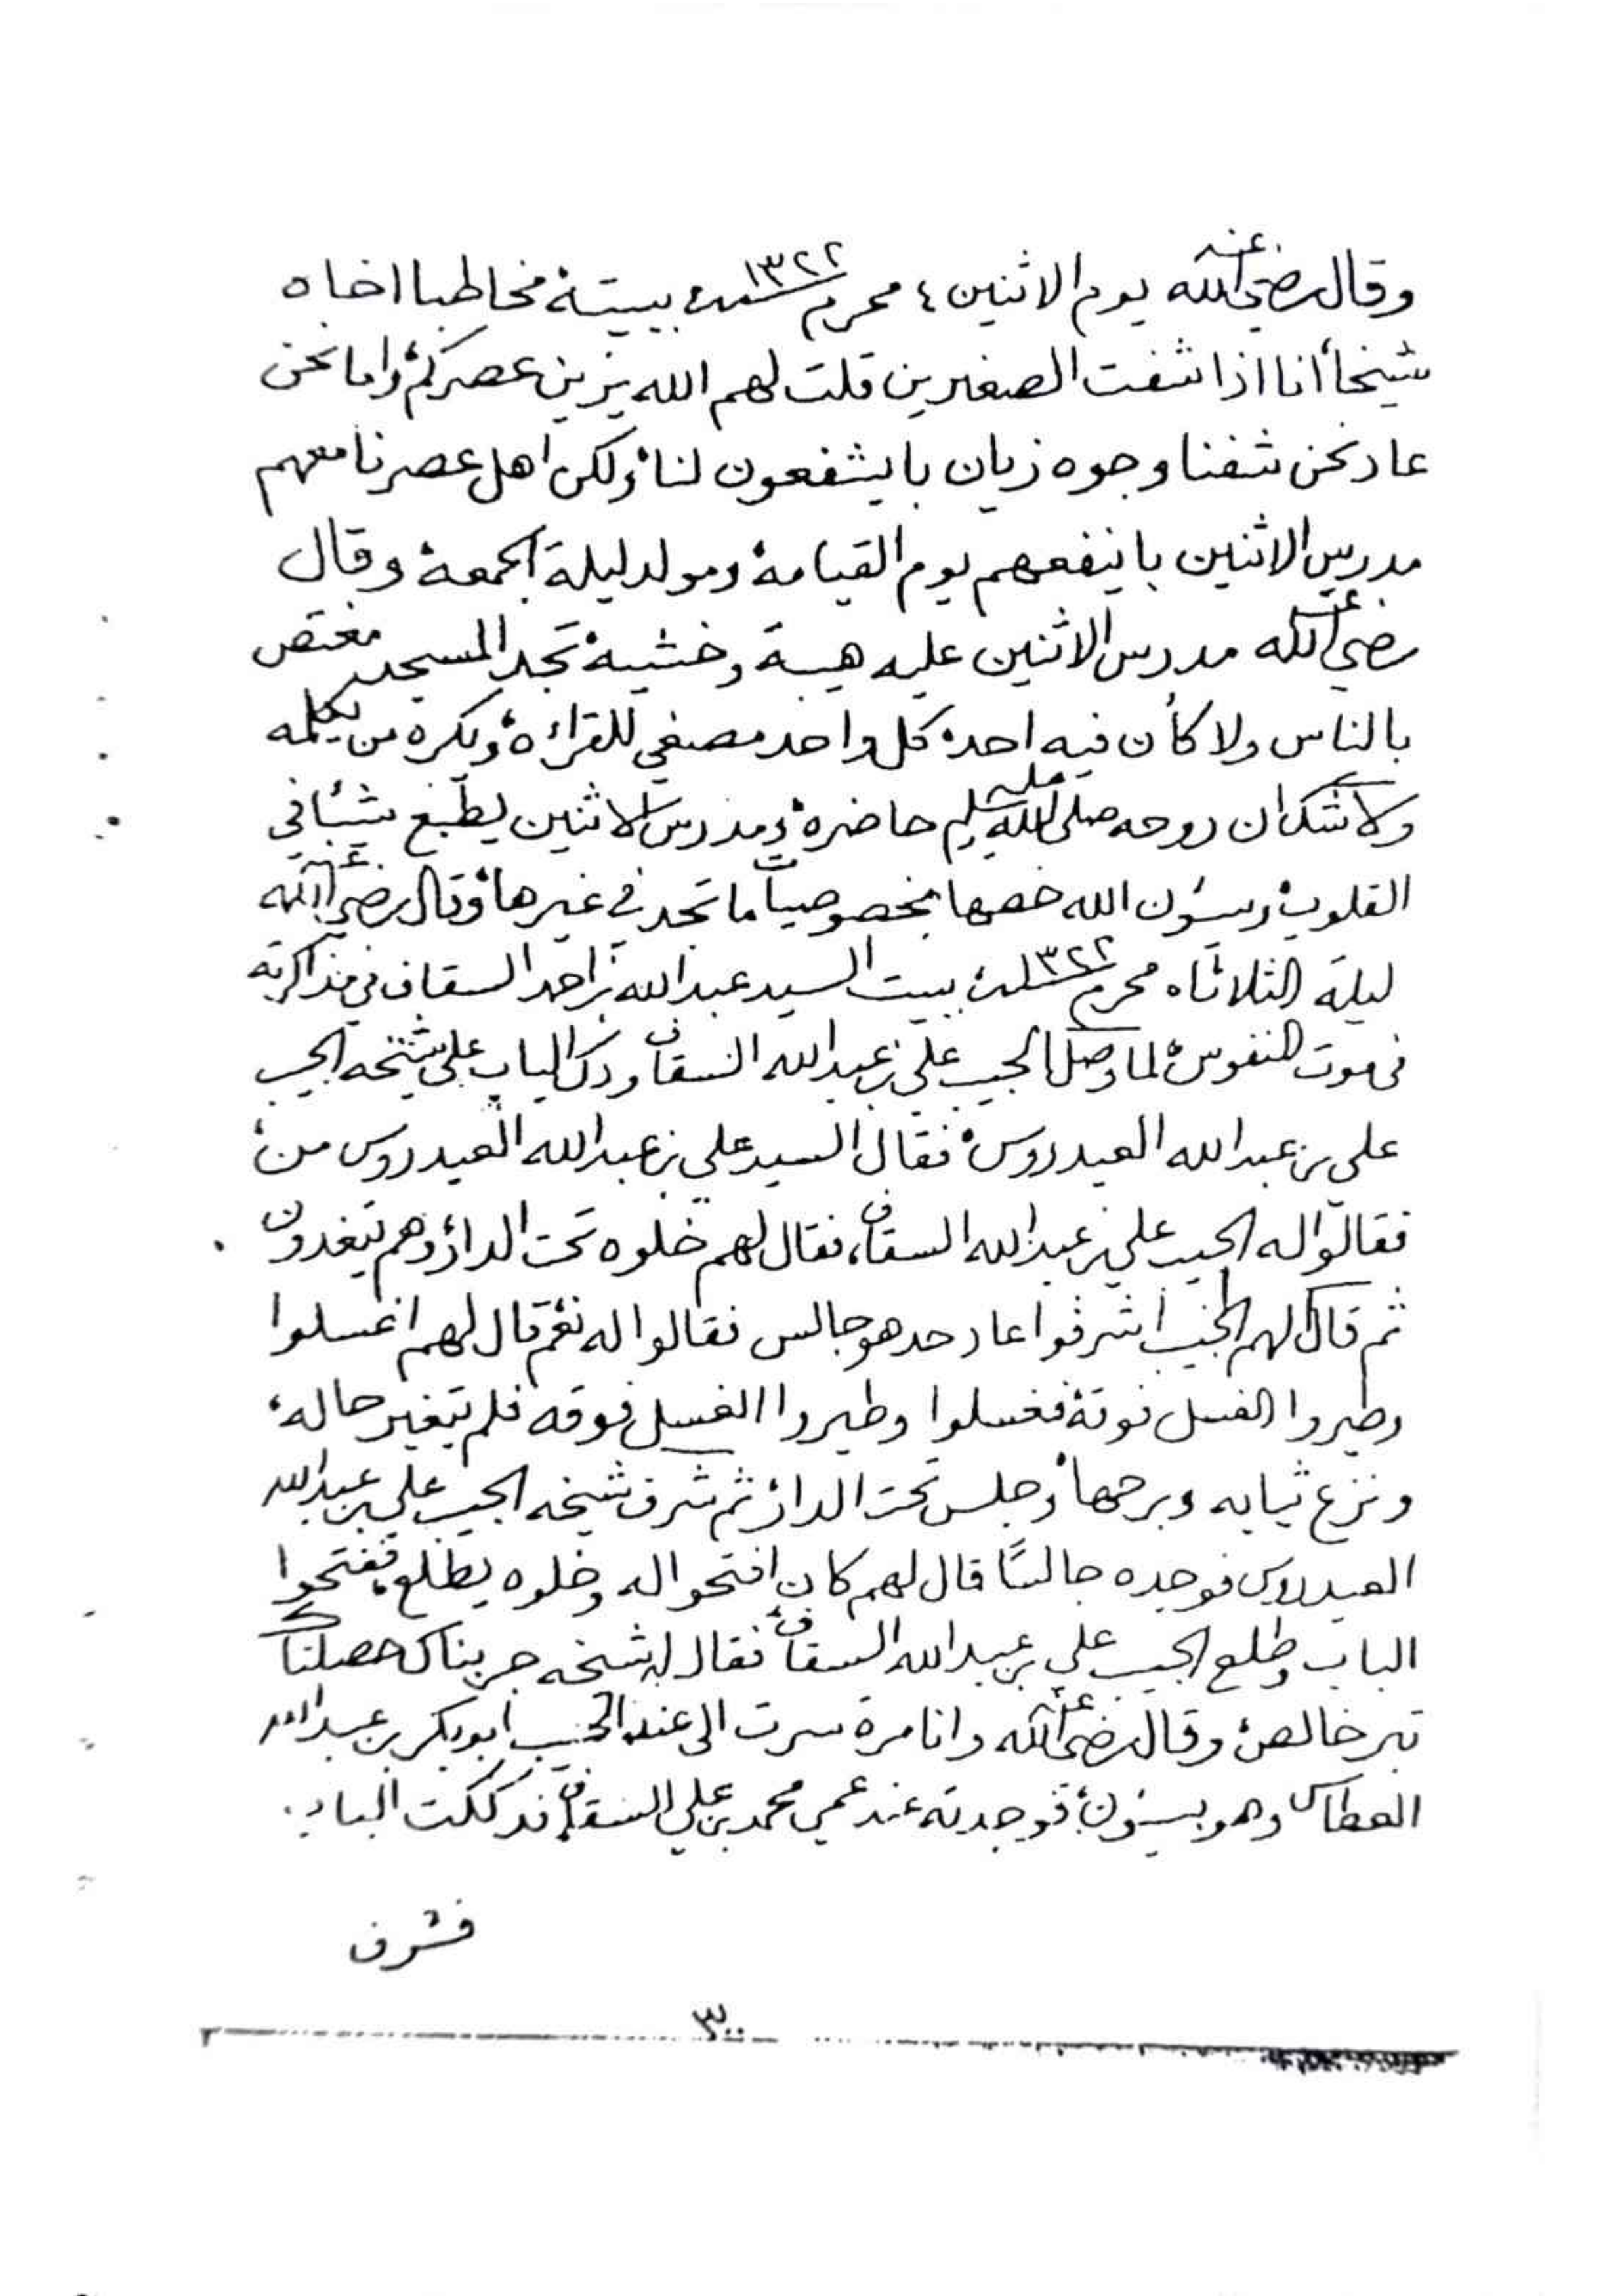 وقال رضي الله عنه يوم الاثنين ٤ محرم سنة ١٣٢٢ ببيته مخاطبا اخاه
شيخا أنا اذا شفت الصغيرين قلت لهم الله يزين عصركم واما نحن
عاد نحن شفنا وجوه زيان بايشفعون لنا ولكن اهل عصرنا معهم
مدرس الاثنين باينفعهم يوم القيامة ومولد ليلة الجمعة وقال
رضي الله عنه مدرس الاثنين عليه هيبة وخشية تجد المسجد مغتص
بالناس ولا كأن فيه احد كل واحد مصغي للقراءة ويكره من يكلمه
ولا شك ان روحه صلى الله عليه وسلم حاضره ومدرس الاثنين يطبع شيئا في
القلوب وسيون الله خصها بخصوصيات ما تجد في غيرها وقال رضي الله عنه
ليلة الثلاثاء محرم سنة ١٣٢٢ ببيت السيد عبد الله بن احمد السقاف في مذاكرته
في موت النفوس لما وصل الحبيب علي بن عبد الله السقاف ودك الباب على شيخه الحبيب
علي بن عبد الله العيدروس فقال السيد علي بن عبد الله العيدروس من
فقالوا له الحبيب علي بن عبد الله السقاف، فقال لهم خلوه تحت الدار وهم يتغدون
ثم قال لهم الحبيب اشرفوا عاد حد هو جالس فقالوا له نعم قال لهم اغسلوا
وطيروا الغسل فوقه فغسلوا وطيروا الغسيل فوقه فلم يتغير حاله
ونزع ثيابه وبرحها وجلس تحت الدار ثم شرف شيخه الحبيب علي بن عبد الله
العيدروس فوجده جالسًا قال لهم كان افتحوا له وخلوه يطلع ففتحوا
الباب وطلع الحبيب علي بن عبد الله السقاف فقال له شيخه جربناك حصلناك
تبر خالص وقال رضي الله عنه وانا مرة سرت الى عند الحبيب ابو بكر بن عبد الله
العطاس وهو بسيون فوجدته عند عمي محمد بن علي السقاف فدككت الباب
فشرف
٣٠٠